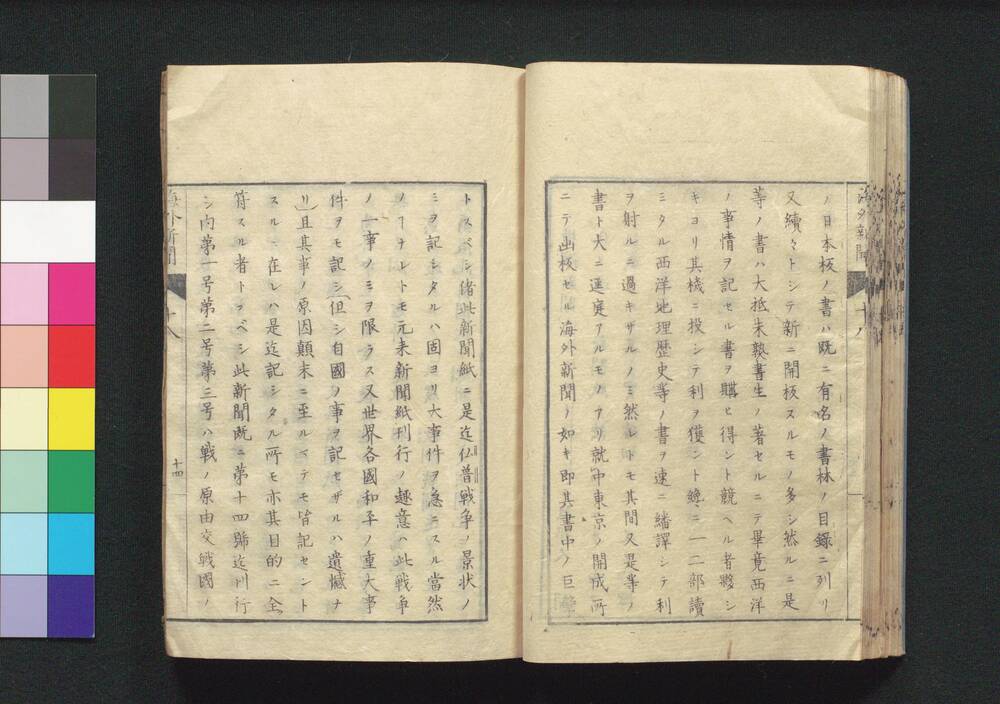 ノ日本板ノ書ハ既ニ有名ノ書林ノ目録ニ列リ
又續々トシテ新ニ開板スルモノ多シ然ルニ是
等ノ書ハ大抵未熟書生ノ著セルニテ畢竟西洋
ノ事情ヲ記セル書ヲ購ヒ得ント競ヘル者夥シ
キヨリ其機ニ投シテ利ヲ獲ント纔ニ一二部讀
ミタル西洋地理歴史等ノ書ヲ速ニ繙譯シテ利
ヲ射ルニ過キザルノミ然レトモ其間又是等ノ
書ト大ニ逕庭アルモノアリ就中東京ノ開成所
ニテ出板セル海外新聞ノ如キ即其書中ノ巨擘
海外新聞
十八
トスベシ偖此新聞紙ニ是迄仏普戦争ノ景状ノ
ミヲ記シタルハ固ヨリ大事件ヲ急ニスル當然
ノヿナレトモ元来新聞紙刊行ノ趣意ハ此戦争
ノ一事ノミヲ限ラス又世界各國和平ノ重大事
件ヲモ記シ(但シ自國ノ事ヲ記セザルハ遺憾ナ
リ)且其事ノ原因顛末ニ至ルベテモ皆記セント
スルニ在レハ是迄記シタル所モ亦其目的ニ全
符スル者ト云ベシ此新聞既ニ第十四號迄刊行
シ内第一号第二号第三号ハ戦ノ原由交戦國ノ
海外新聞
十八
十四